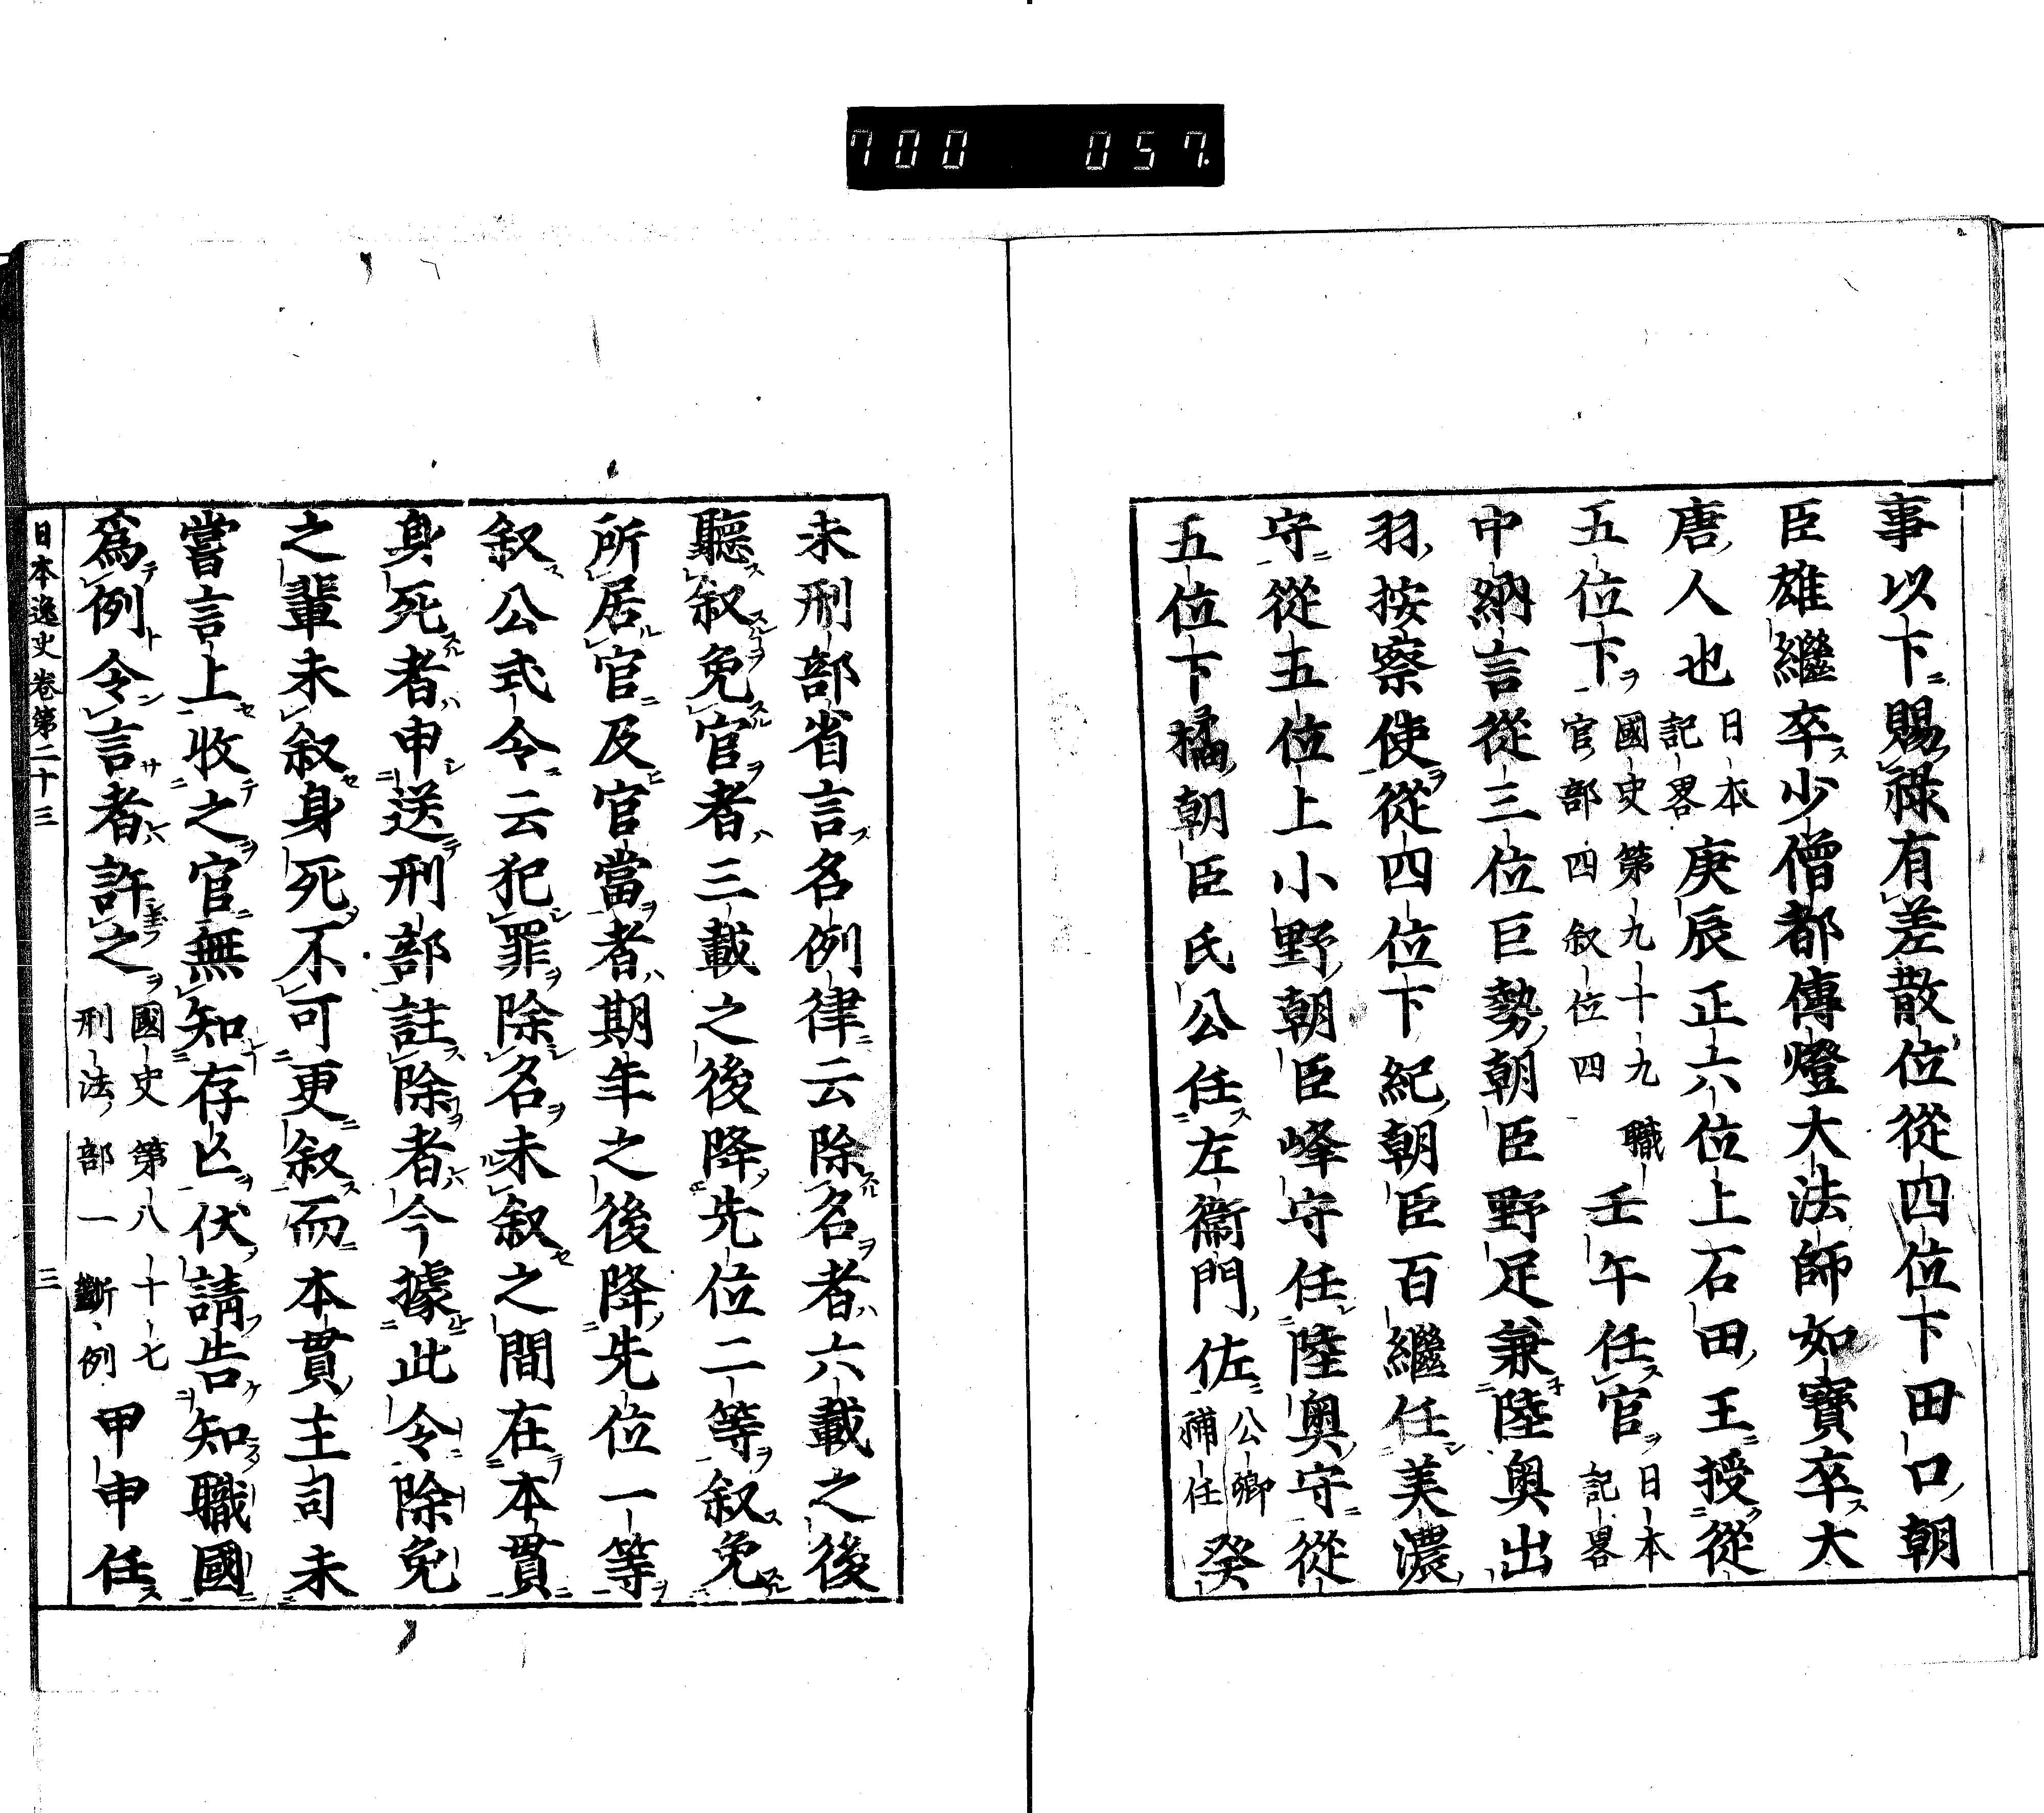 700 057
事以下賜祿有差散位從四位下田口朝
臣雄繼卒少僧都傳燈大法師如寶卒大
唐人也日本記畧庚辰正六位上石田王授從
五位下國史第九十九職官部四叙位四壬午任官日本記畧
中納言從三位巨勢朝臣野足兼陸奥出
羽按察使從四位下紀朝臣百繼任美濃
守從五位上小野朝臣峰守任陸奥守從
五位下橘朝臣氏公任左衞門佐公卿補任癸
未刑部省言名例律云除名者六載之後
聽叙免官者三載之後降先位二等叙免
所居官及官當者期年之後降先位一等
叙公式令云犯罪除名未叙之間在本貫
身死者申送刑部註除者今據此令除免
之輩未叙身死不可更叙而本貫主司未
嘗言上收之官無知存亡伏請告知職國
爲例令言者許之國史第八十七刑法部一斷例甲申任
日本逸史卷第二十三 三